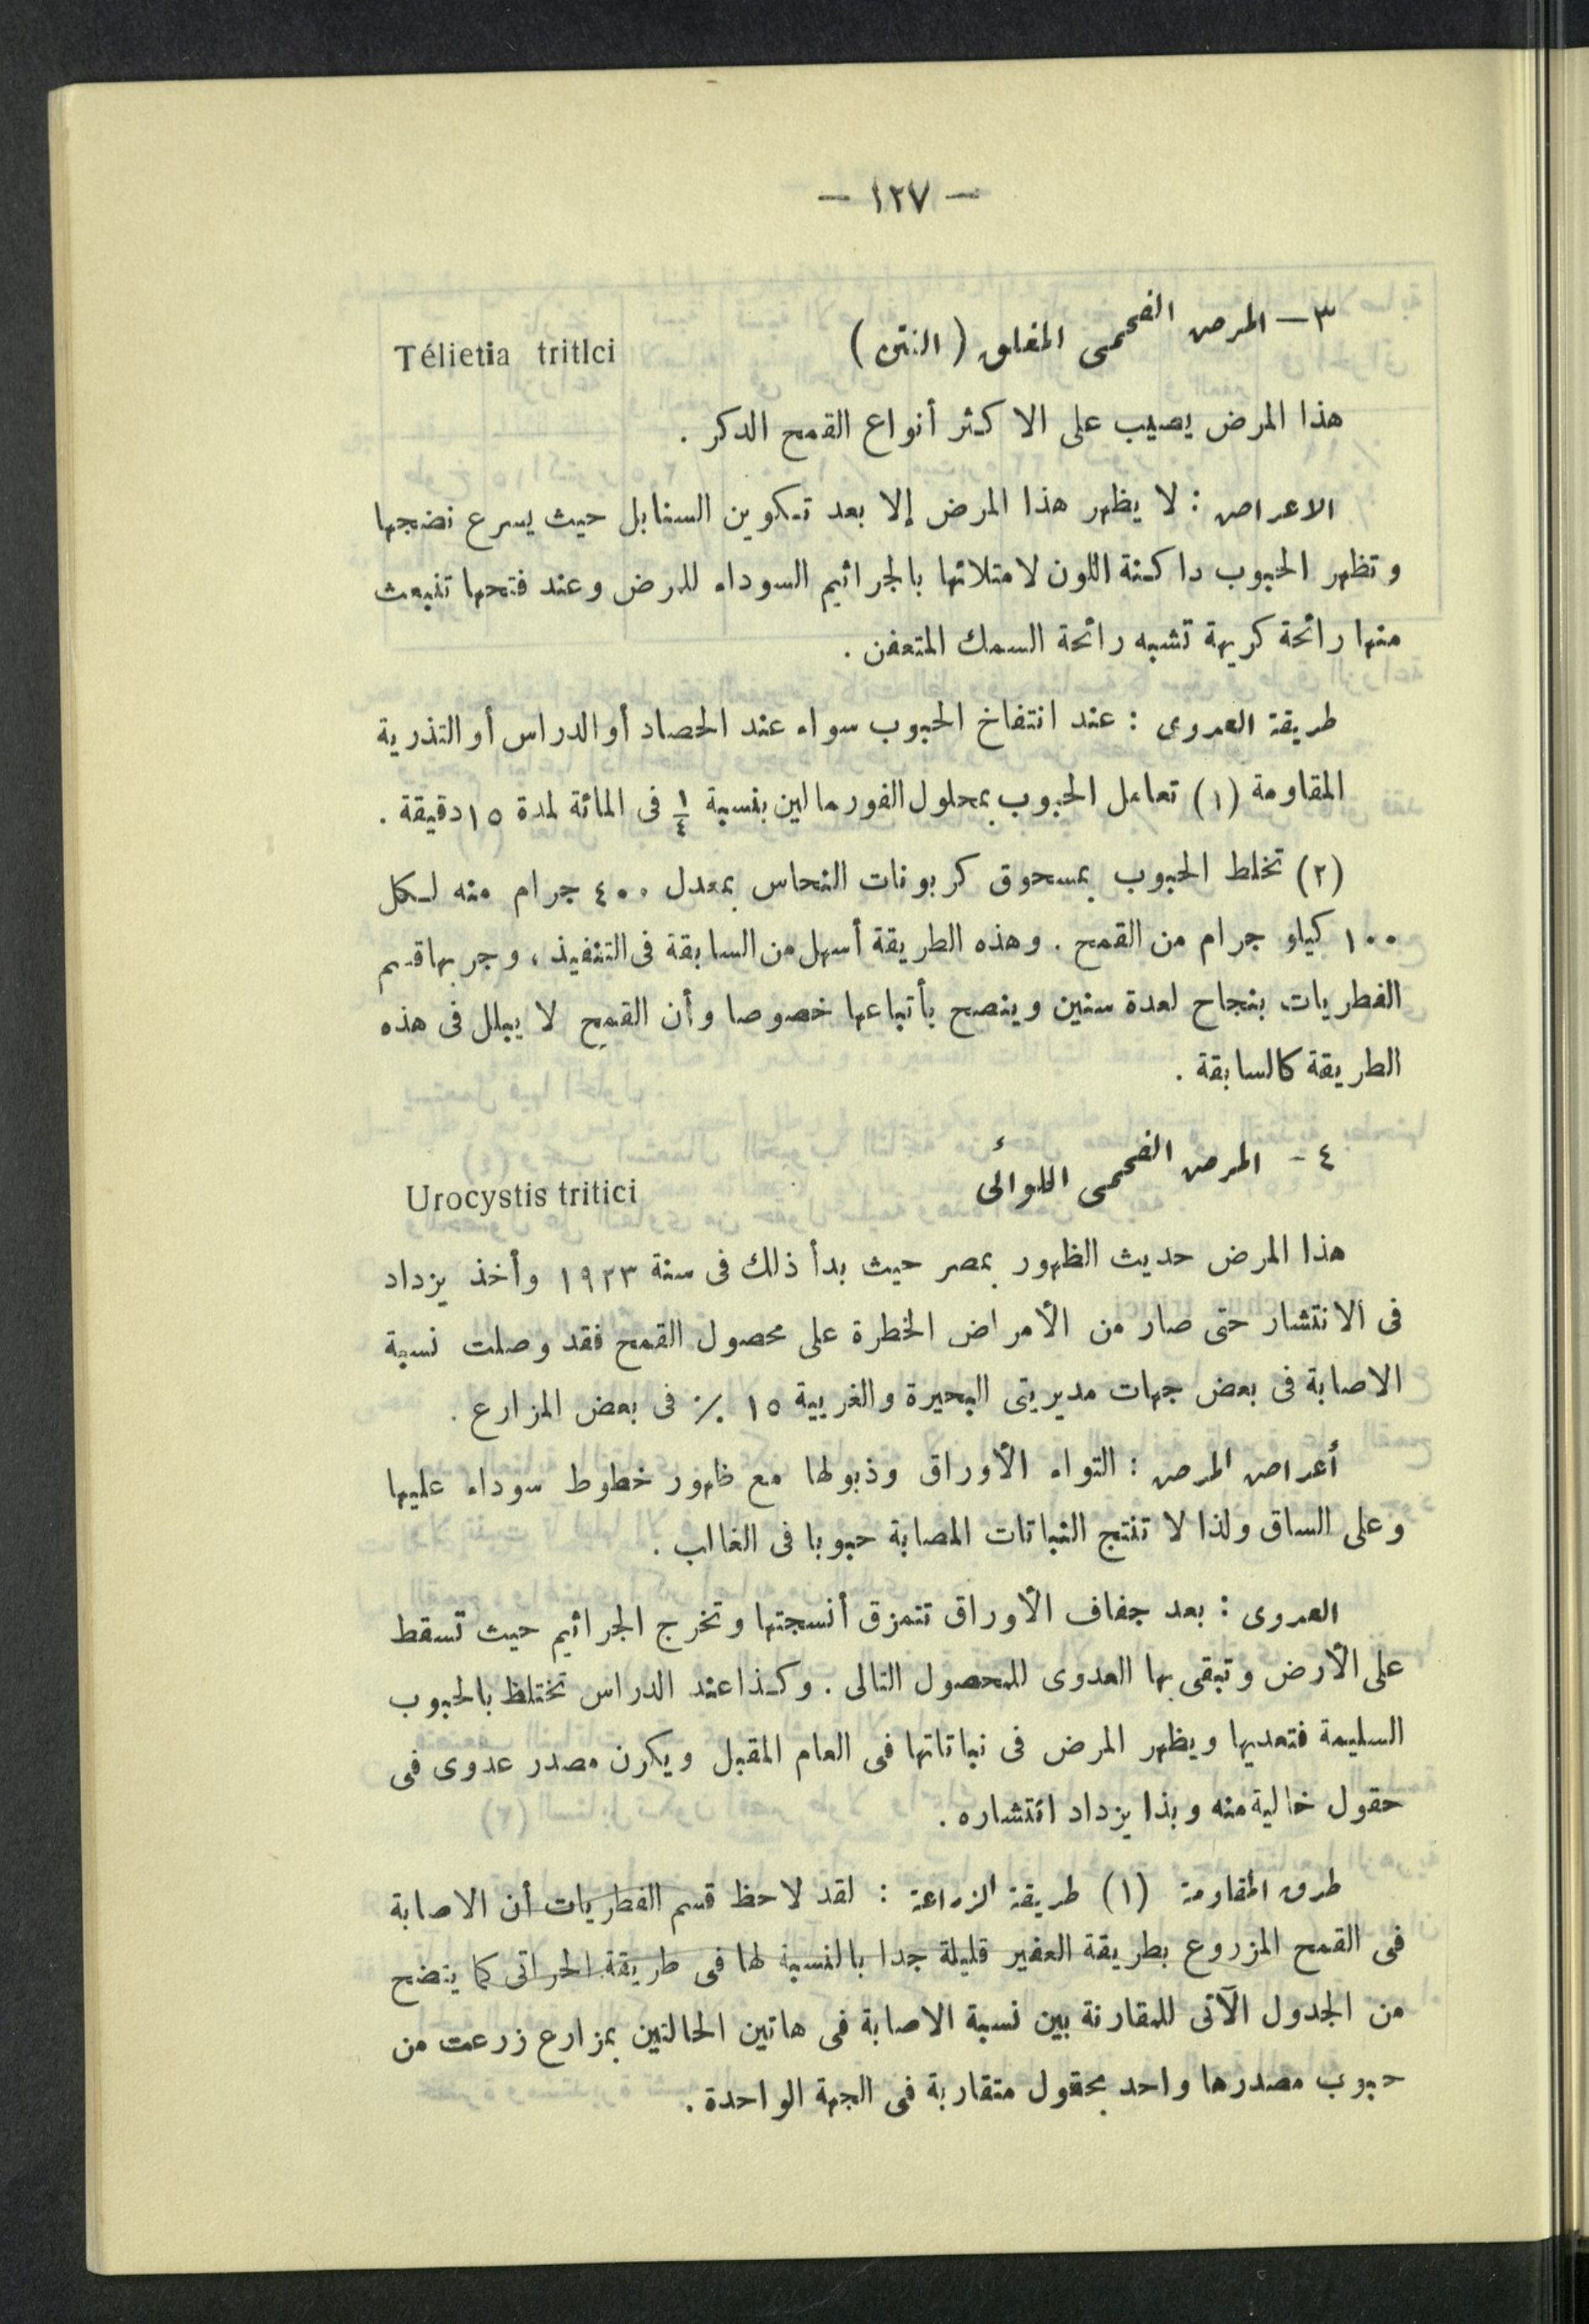 — ١٢٧ —
٣ — المرض الفحمى المغلق ( النتن ) Télietia tritici
هذا المرض يصيب على الاكثر أنواع القمح الدكر .
الاعراض : لا يظهر هذا المرض إلا بعد تكوين السنابل حيث يسرع نضجها
وتظهر الحبوب داكنة اللون لامتلائها بالجراثيم السوداء للمرض وعند فتحها تنبعث
منها رائحة كريهة تشبه رائحة السمك المتعفن .
طريقة العدوى : عند انتفاخ الحبوب سواء عند الحصاد أو الدراس أو التذرية
المقاومة (١) تعامل الحبوب بمحلول الفورمالين بنسبة ¼ فى المائة لمدة ١٥ دقيقة .
(٢) تخلط الحبوب بمسحوق كربونات النحاس بمعدل ٤٠٠ جرام منه لكل
١٠٠ كيلو جرام من القمح . وهذه الطريقة أسهل من السابقة فى التنفيذ ، وجربها قسم
الفطريات بنجاح لعدة سنين وينصح بأتباعها خصوصا وأن القمح لا يبلل فى هذه
الطريقة كالسابقة .
٤ - المرض الفحمى اللوائى Urocystis tritici
هذا المرض حديث الظهور بمصر حيث بدأ ذلك فى سنة ١٩٢٣ وأخذ يزداد
فى الانتشار حتى صار من الأمراض الخطرة على محصول القمح فقد وصلت نسبة
الاصابة فى بعض جهات مديريتى البحيرة والغربية ١٥ ٪ فى بعض المزارع .
أعراض المرض : التواء الأوراق وذبولها مع ظهور خطوط سوداء عليها
وعلى الساق ولذا لا تنتج النباتات المصابة حبوبا فى الغالب .
العدوى : بعد جفاف الأوراق تتمزق أنسجتها وتخرج الجراثيم حيث تسقط
على الأرض وتبقى بها العدوى للمحصول التالى . وكذا عند الدراس تختلط بالحبوب
السليمة فتعديها ويظهر المرض فى نباتاتها فى العام المقبل ويكون مصدر عدوى فى
حقول خالية منه وبذا يزداد انتشاره .
طرق المقاومة (١) طريقة الزراعة : لقد لاحظ قسم الفطريات أن الاصابة
فى القمح المزروع بطريقة العفير قليلة جدا بالنسبة لها فى طريقة الحراتى كما يتضح
من الجدول الآتى للمقارنة بين نسبة الاصابة فى هاتين الحالتين بمزارع زرعت من
حبوب مصدرها واحد بحقول متقاربة فى الجهة الواحدة .